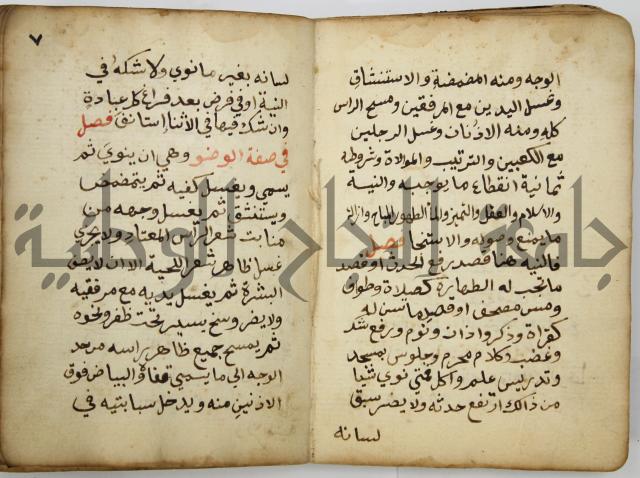 الوجه ومنه المضمضة والاستنشاق
وغسل اليدين مع المرفقين ومسح الراس
كله ومنه الاذنان وغسل الرجلين
مع الكعبين والترتيب والموالاة وشروطه
ثمانية انقطاع ما يوجبه والنية
والاسلام والعقل والتميز والماء الطهور المباح وازالة
ما يمنع وصوله والاستنجا فصل
فالنية هنا قصد رفع الحدث او قصد
ما تجب له الطهارة كصلاة وطواف
ومس مصحف او قصد ما تسن له
كقراة وذكر واذان ونوم ورفع شك
وغضب وكلام محرم وجلوس بمسجد
وتدريس علم واكل فمتى نوي شيا
من ذالك ارتفع حدثه ولا يضر سبق
لسانه
٧
لسانه بغير ما نوي ولا شكه في
النية او في فرض بعد فراغ كل عبادة
وان شك فيها في الاثنا استانف فصل
في صفة الوضو وهي ان ينوي ثم
يسمي ويغسل كفيه ثم يتمضمض
ويستنشق ثم يغسل وجهه من
منابت شعر الراس المعتاد ولا يجزي
غسل ظاهر شعر اللحية الا ان لا يصف
البشرة ثم يغسل يديه مع مرفقيه
ولا يضر وسخ يسير تحت ظفر ونحوه
ثم يمسح جميع ظاهر راسه من حد
الوجه الى ما يسمي قفا والبياض فوق
الاذنين منه ويدخل سبابتيه في
جامعة النجاح الوطنية